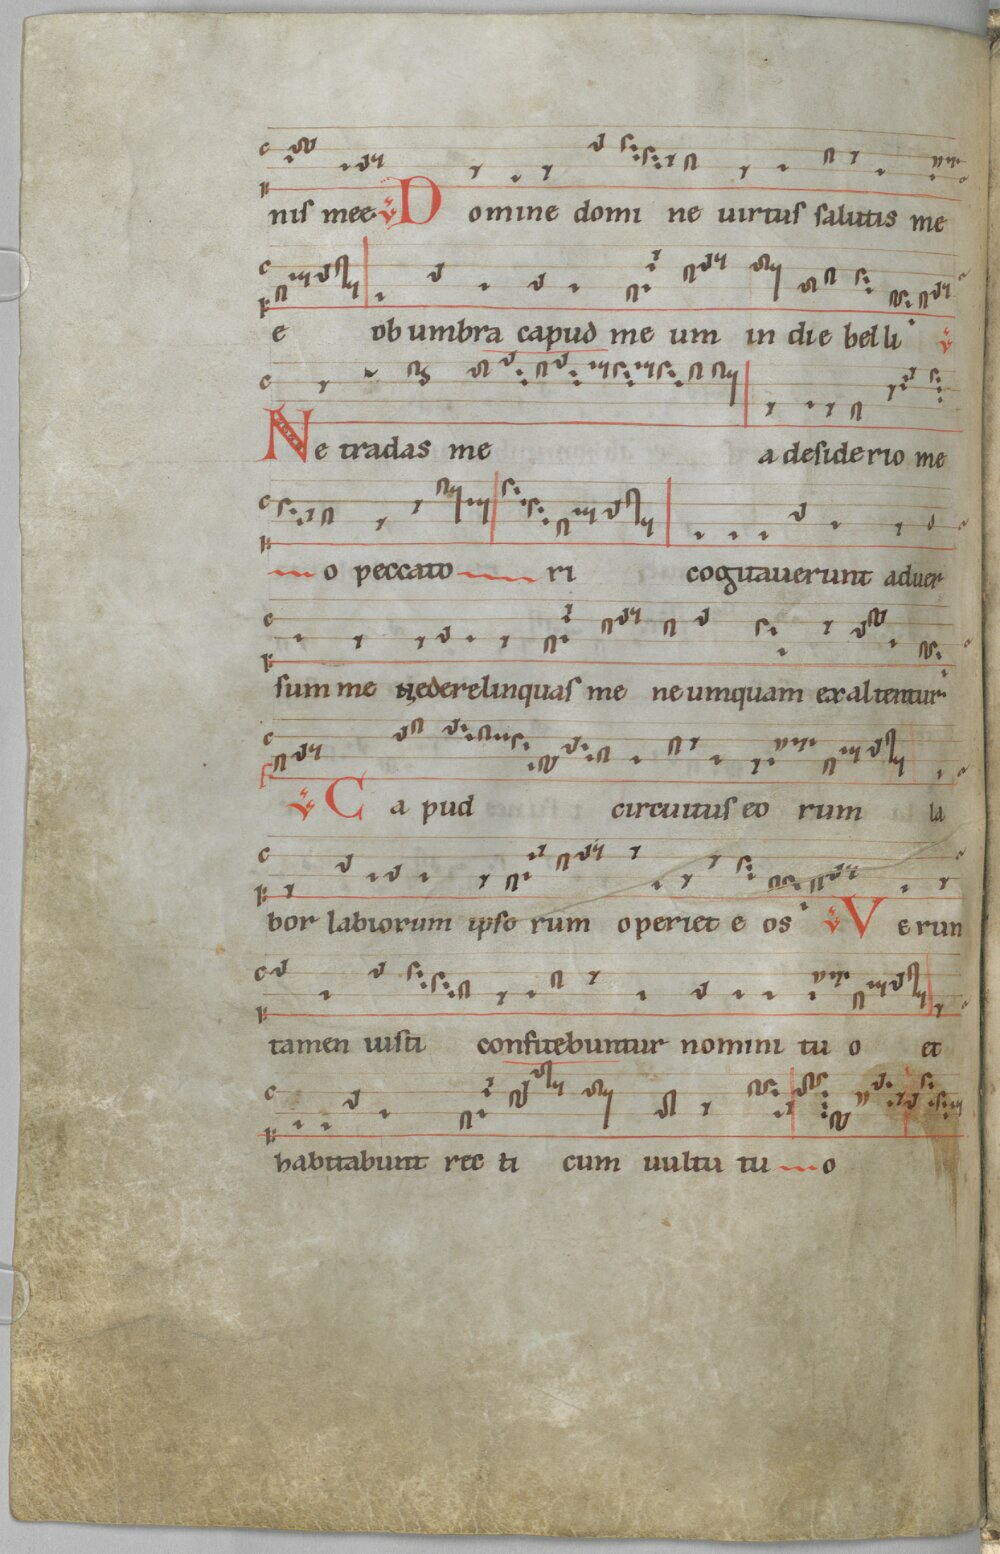 nis mee ℣ Domine domi ne uirtus salutis me
e ob umbra capud me um in die belli ℣
Ne tradas me a desiderio me
o peccato ri cogitauerunt aduer
sum me nederelinquas me neumquam exaltentur
℣ Ca pud circuitus eo rum la
bor labiorum ipso rum operiet e os ℣ Verun
tamen iusti confitebuntur nomini tu o et
habitabunt rec ti cum uultu tu o